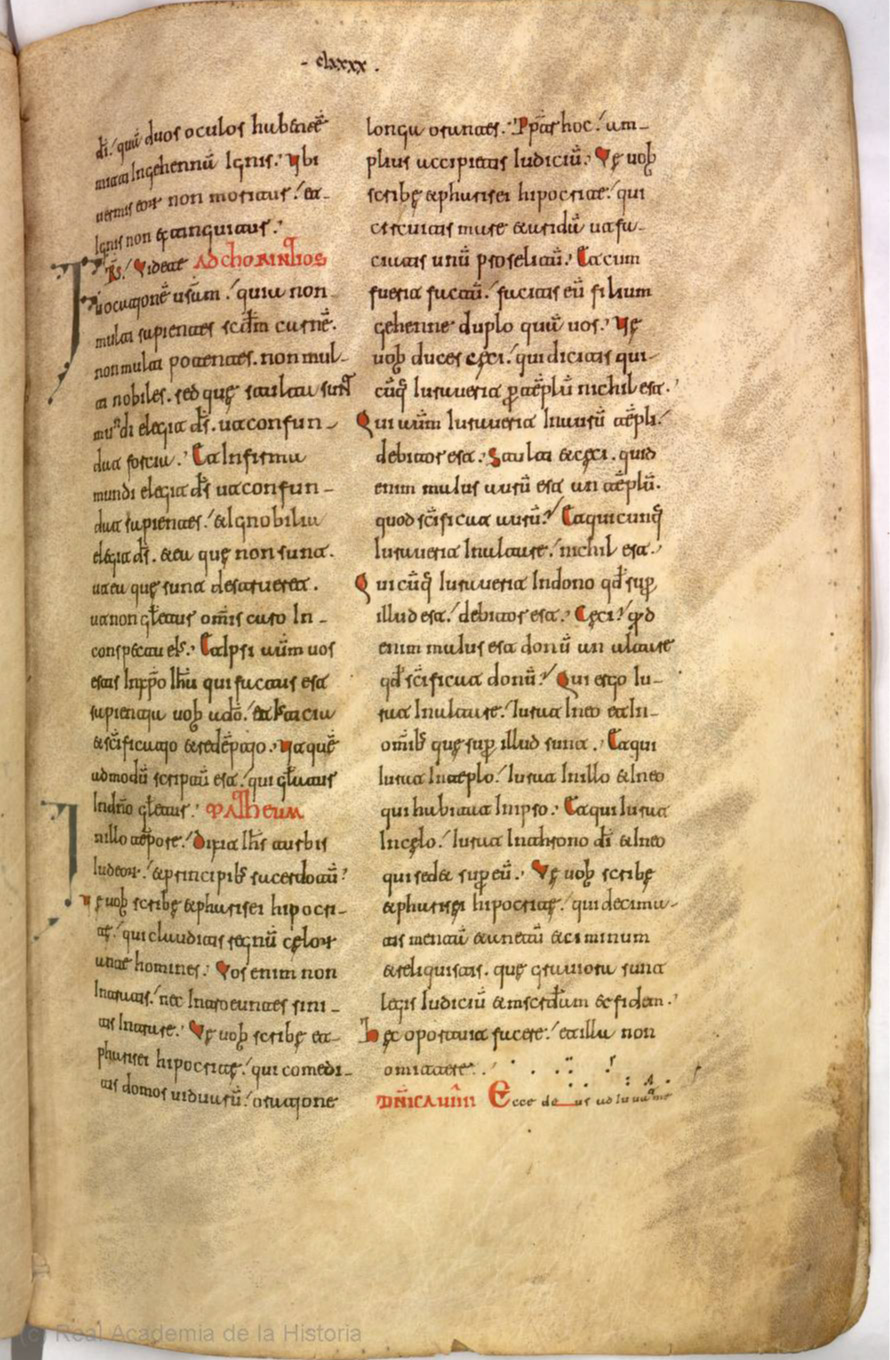 - clxxxx .
dī. quā duos oculos habentē
mitti In gehennā Ignis. Ubi
uermis eorꝝ non moritur. et-
Ignis non extinguitur.
Frs̄. Uidete AD CHORINTIOS
uocationē uestrām. quia non
multi sapientes scd̄m carnē.
non multi potentes. non mul-
ti nobiles. sed quę stulta sunt
mundi elegit ds̄. ut confun-
dat fortia. Et Infirma
mundi elegit ds̄ ut confun-
dat sapientes. et Ignobilia
elegit ds̄. et ea quę non sunt.
ut ea quę sunt destrueret.
ut non glr̄etur omīs caro In-
conspectu eīs. Et Ipsi uūm uos
estis In xp̄o Ihū qui factus est
sapientia uob̄ a dō. et Iustitia
et sc̄ificatio et redēptio. Ut quę
admodū scriptū est. qui glr̄iatur
In dn̄o glr̄etur. MATHEUM
In illo tēpore. Dixit Ihs̄ turbis
Iudeorꝝ. et principib̄ sacerdotū.
Uę uob̄ scribę et pharisei hipocri-
tę. qui clauditis regnū cęlorꝝ
ante homines. Uos enim non
Intratis. nec Introeuntes sini-
tis Intrare. Uę uob̄ scribę et-
pharisei hipocritę. qui comedi-
tis domos uiduarū. oratione
longa orantes. Ppt̄er hoc. am-
plius accipietis Iudiciū. Uę uob̄
scribę et pharisei hipocritę. qui
circuitis mare et aridā ut fa-
ciatis unū proselitū. Et cum
fuerit factū. facitis eū filium
gehenne duplo quā uos. Uę
uob̄ duces cęci. qui dicitis qui-
cūq̄ Iurauerit p̄ tēplū nichil est.
Qui aūm Iurauerit In aurū tēpli.
debitor est. Stulti et cęci. quid
enim maius aurū est an tēplū.
quod sc̄ificat aurū. Et quicunq̄
Iurauerit In altare. nichil est.
Quicūq̄ Iurauerit In dono qd̄ sup̄
illud est. debitor est. Cęci. qd̄
enim maius est donū an altare
qd̄ sc̄ificat donū. Qui ergo Iu-
rat In altare. Iurat In eo et In-
omīb̄ quę sup̄ illud sunt. Et qui
Iurat In tēplo. Iurat In illo et In eo
qui habitat In ipso. Et qui Iurat
In cęlo. Iurat In throno dī et In eo
qui sedet sup̄ eū. Uę uob̄ scribę
et pharisęi hipocritę. qui decima-
tis mentā et anetū et ciminum
et reliquistis. quę grauiora sunt
legis Iudiciū et mscrd̄iam et fidem.
Hęc oportuit facere. et illa non
omittere.
DN̄ICA UIIII Ecce deus adiuuat me